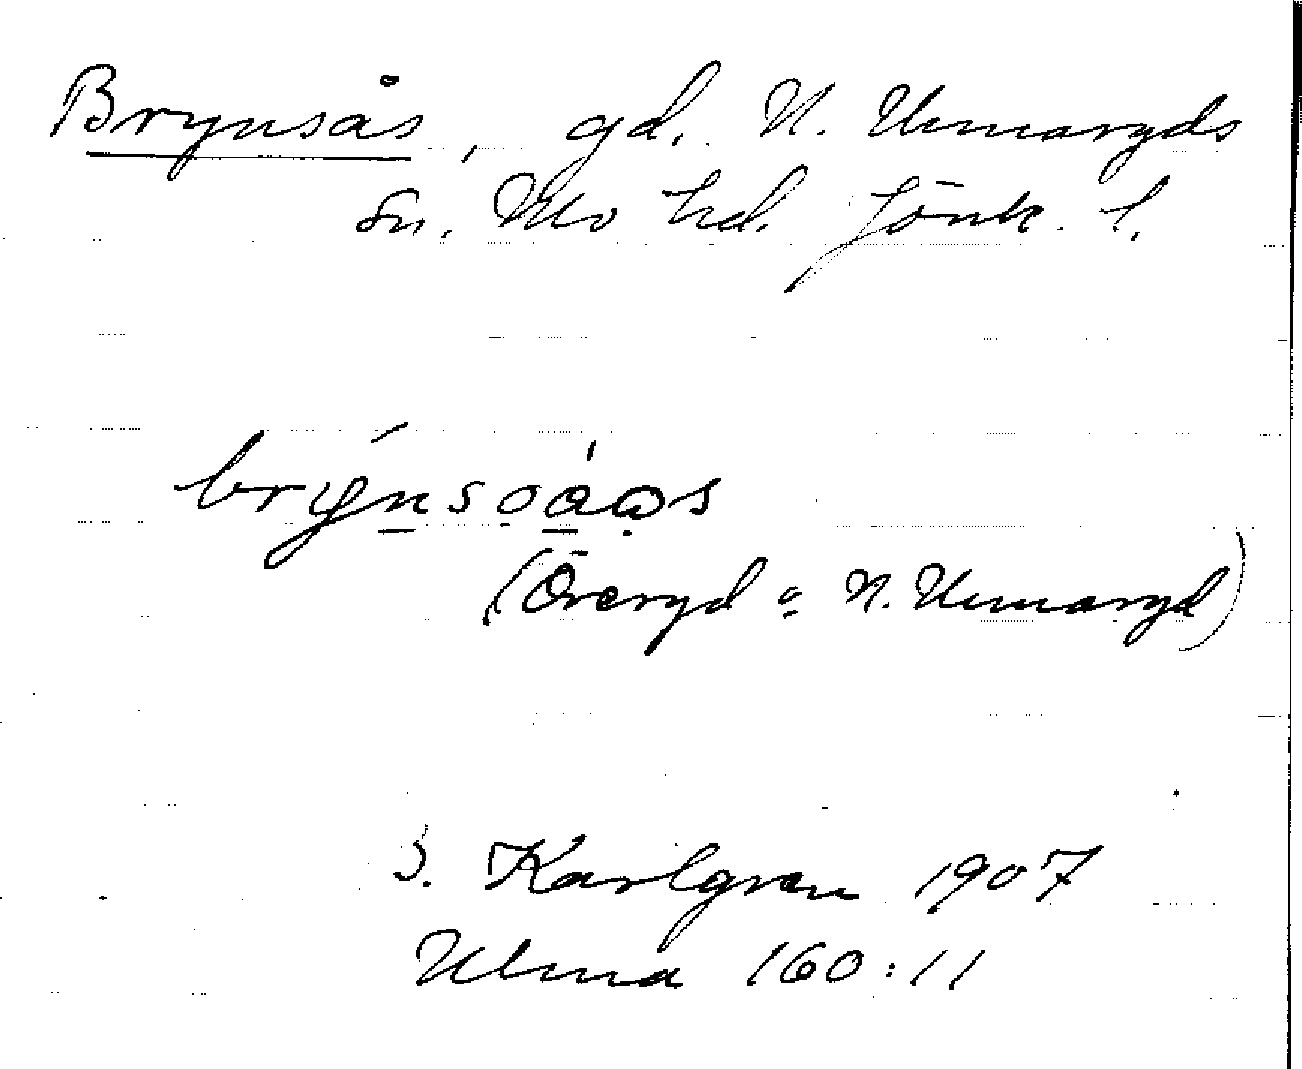 Brynsås, gd. N. Unnaryds
sn. Mo hd. Jönk. l.
brýnsoa̱ọs
(Öreryd o. N. Unnaryd)
B. Karlgren 1907
Ulma 160:11